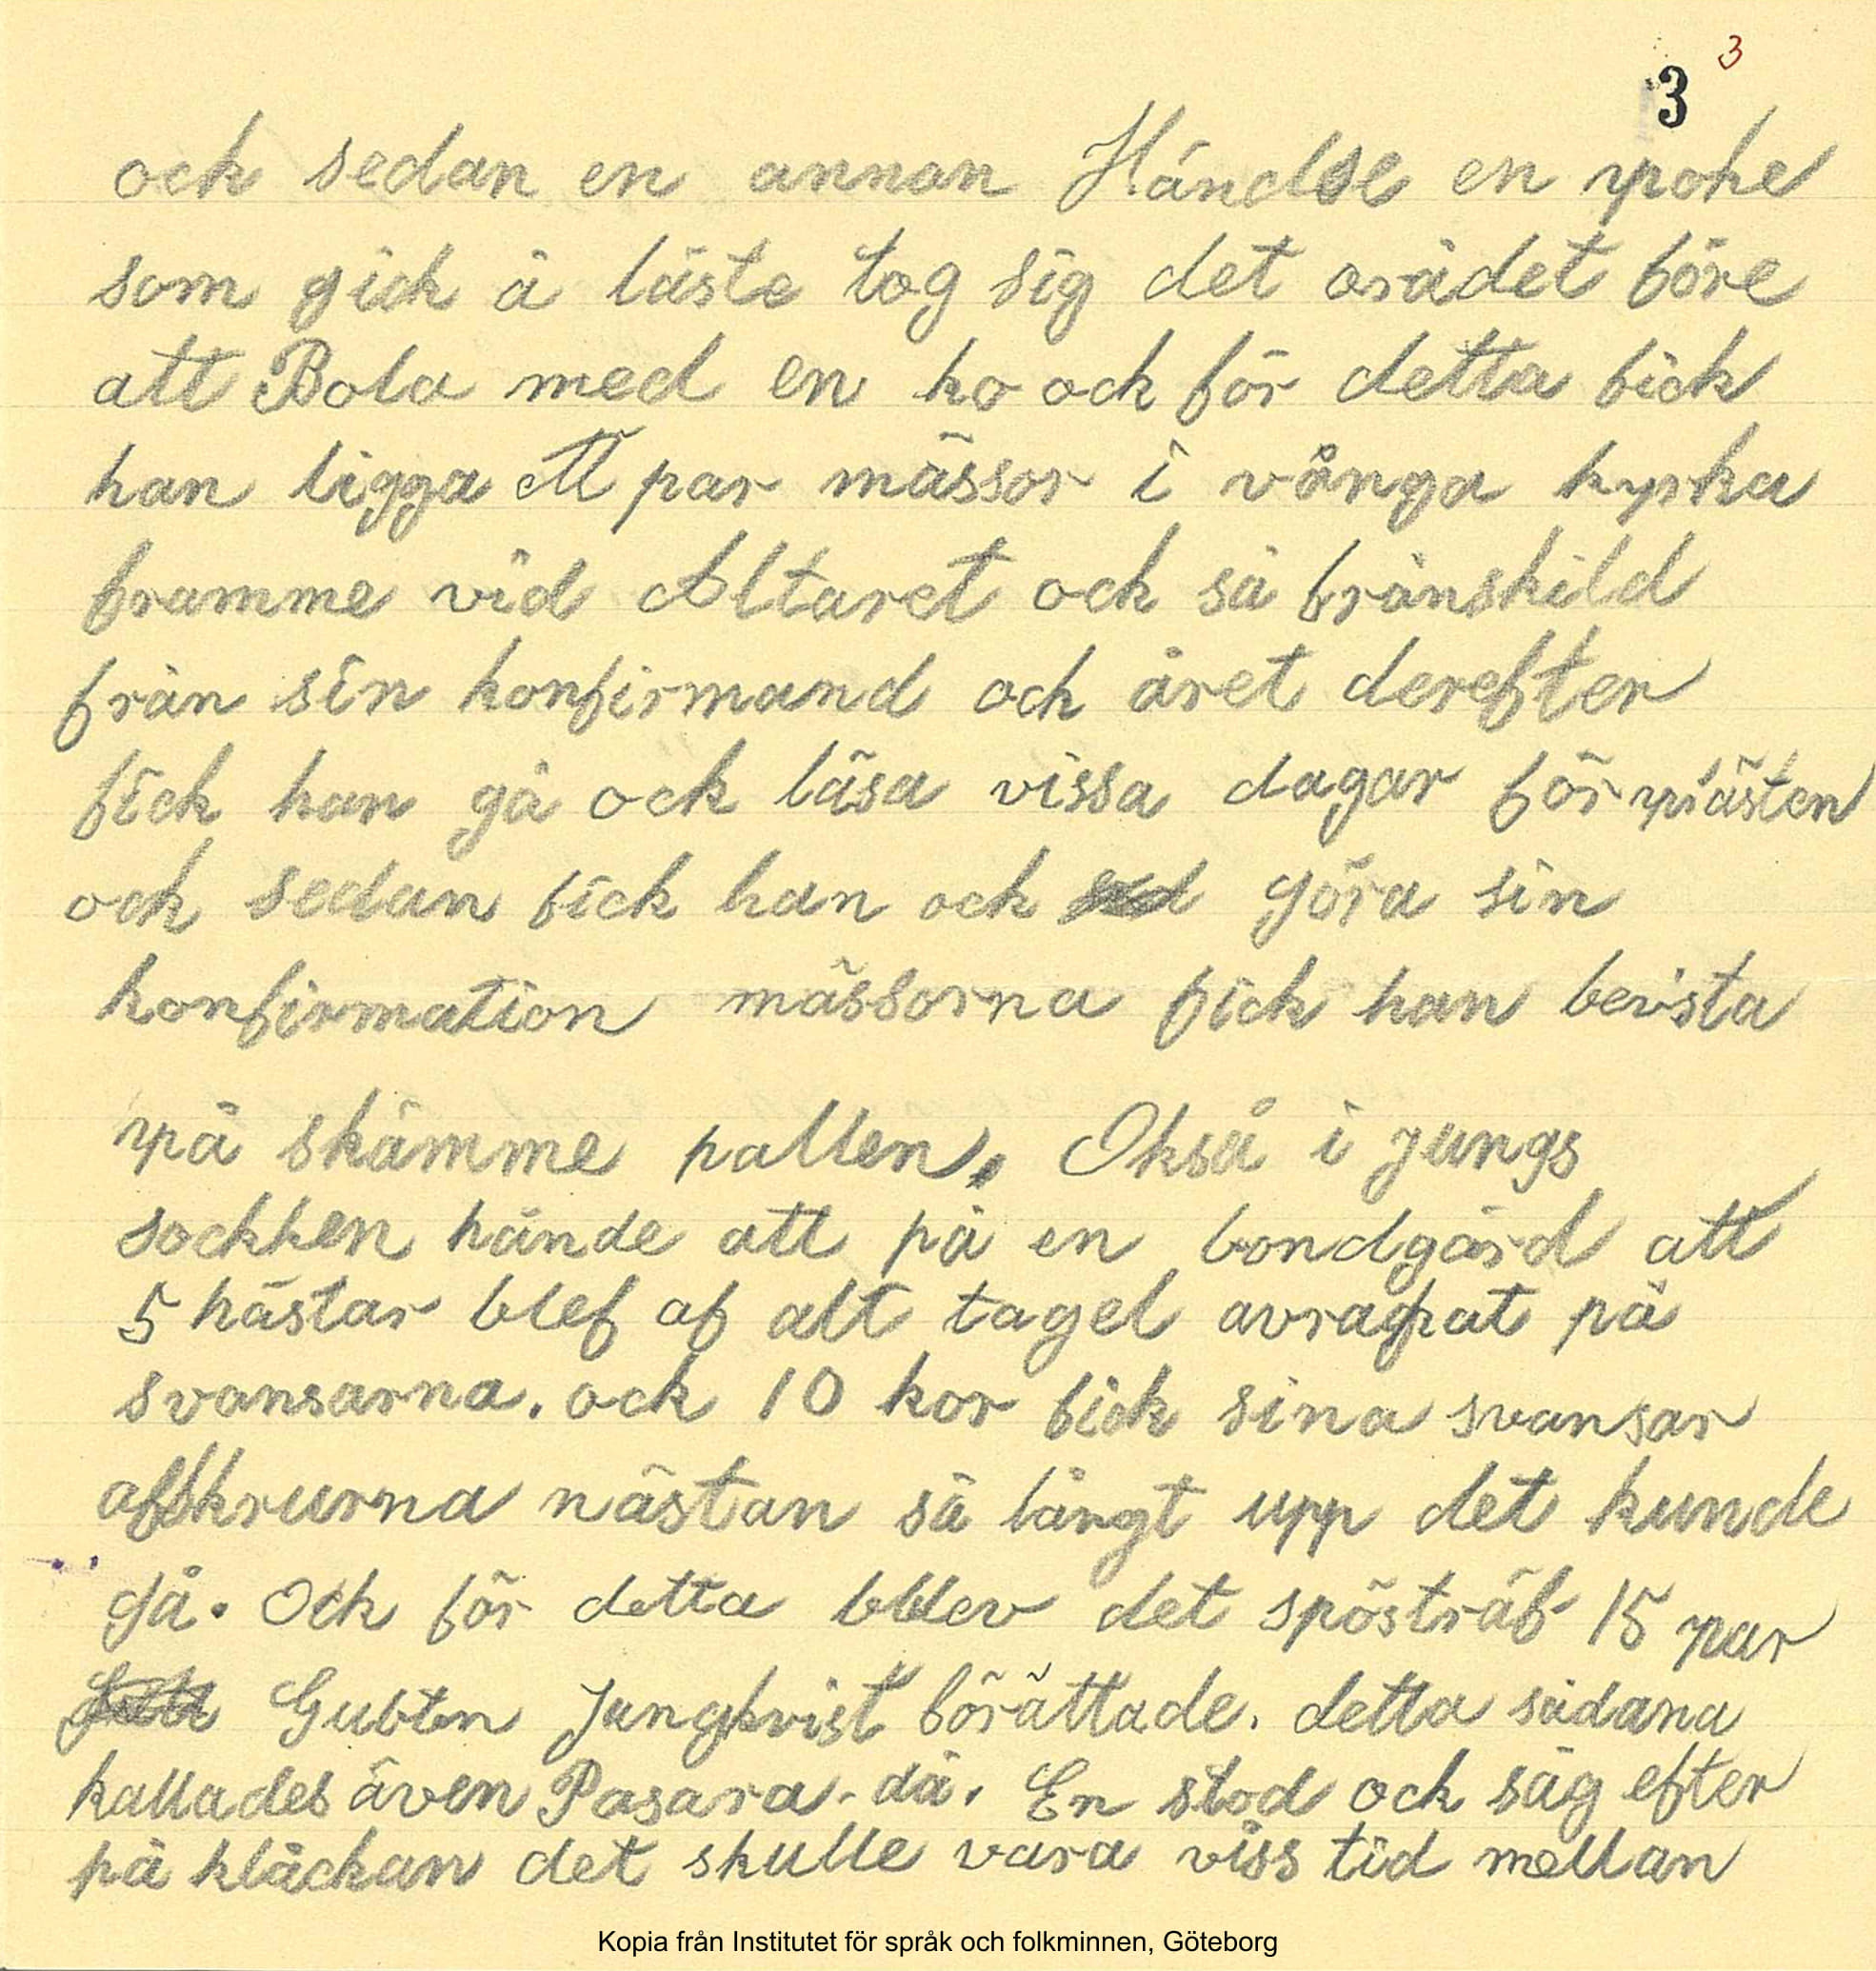 3 3
ock sedan en annan Händse en pohe
som gick å läste tog sig det orådet före
att Bola med en ko ock för detta fick
han ligga ett par mässor i vånga kyrka
framme vid Altaret ock så frånskild
från sin konfirmand och året derefter
fick han gå ock läsa vissa dagar för prästen
och sedan fick han ock göra sin
konfirmation mässorna fick han bevista
på skämme pallen. Okså i jungs
sockhen hände att på en bondgård att
5 hästar blef af alt tagel avrapat på
svansarna. ock 10 kor fick sina svansar
afskrurna nästan så långt upp det kunde
gå. Ock för detta bblev det spösträf 15 par
Gubben Jungkvist börättade. detta sådana
kallades även Pasara då. En stod ock såg efter
på klåckan det skulle vara viss tid mellan
Kopia från Institutet för språk och folkminnen, Göteborg